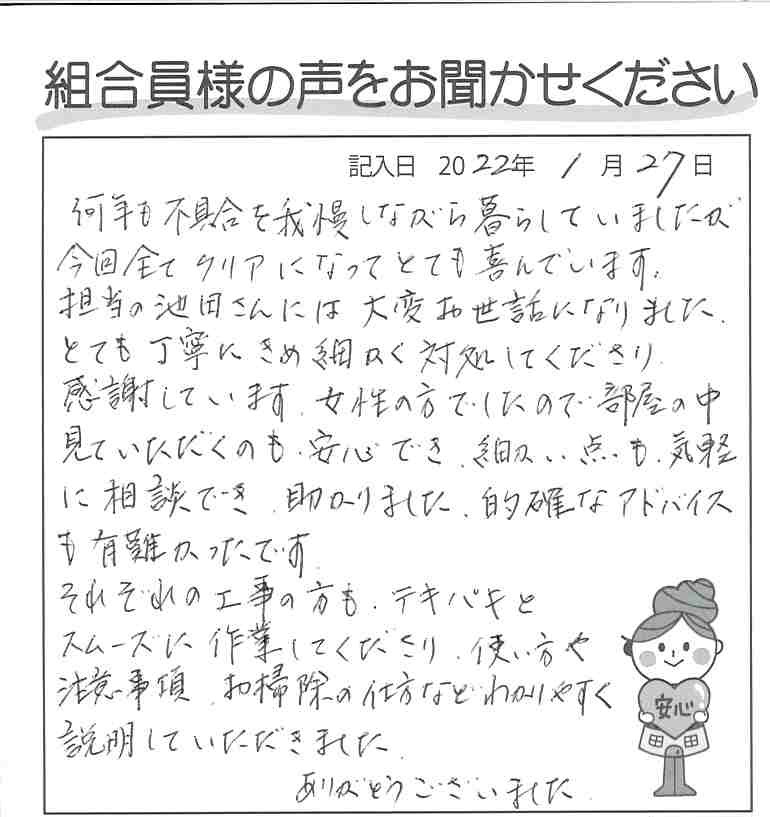 組合員様の声をお聞かせください
記入日 2022年 1月27日
何年も不具合を我慢しながら暮らしていましたが
今回全てクリアになってとても喜んでいます。
担当の池田さんには大変お世話になりました。
とても丁寧にきめ細かく対処してくださり
感謝しています。女性の方でしたので部屋の中
見ていただくのも、安心でき、細かい点も、気軽
に相談でき、助かりました。的確なアドバイス
も有難かったです。
それぞれの工事の方も、テキパキと
スムーズに作業してくださり、使い方や
注意事項、お掃除の仕方などわかりやすく
説明していただきました。
ありがとうございました。
安心